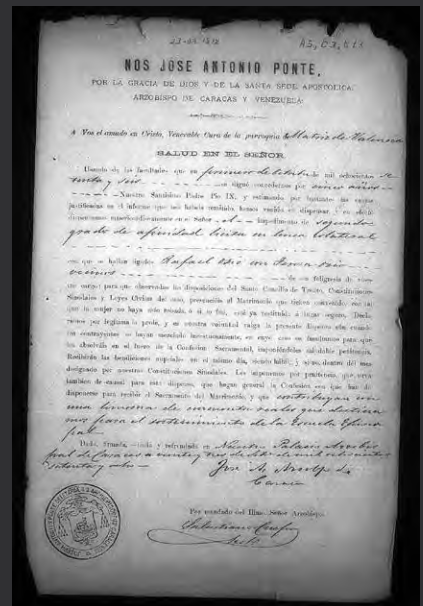 NOS JOSE ANTONIO PONTE,
POR LA GRACIA DE DIOS Y DE LA SANTA SEDE APOSTOLICA,
ARZOBISPO DE CARACAS Y VENEZUELA
A Vos el amado en Cristo, Venerable Cura de la parroquia de Matriz de Valencia
SALUD EN EL SEÑOR
Usando de las facultades que en primero de de mil ochocientos se
tenta y seis se dignó concedernos por cinco años
Nuestro Santísimo Padre Pio IX, y estimando por bastante las causas
justificadas en el informe que nos habeis remitido, hemos venido en dispensar, y en efecto
dispensamos misericordiosamente en el Señor el impedimento de segundo
grado de afinidad lícita en línea colateral
con que se hallan ligados Rafael con
vecinos de esa feligresía de vues
tro cargo: para que observadas las disposiciones del Santo Concilio de Trento, Constituciones
Sinodales y Leyes Civiles del caso, procedais al Matrimonio que tienen contraido, con tal
que la mujer no haya sido robada, ó si lo fué, esté ya restituida á lugar seguro. Decla
ramos por legítima la prole, y es nuestra voluntad valga la presente dispensa aún cuando
los contrayentes se hayan mezclado incestuosamente, en cuyo caso os facultamos para que
los absolvais en el fuero de la Confesion Sacramental, imponiéndoles saludable penitencia.
Recibirán las bendiciones nupciales en el mismo dia, siendo hábil, y si no, dentro del mes
designado por nuestras Constituciones Sinodales. Les imponemos por penitencia, que servi
también de causal para esta dispensa, que hagan general la Confesion con que han de
disponerse para recibir el Sacramento del Matrimonio, y que contribuyan con
una limosna de cuarenta reales que destina
mos para el sostenimiento de la Escuela Episco
pal.
Dada, firmada, sellada y refrendada en Nuestro Palacio Arzobis
pal de Caracas a veinte y tres de de mil ochocientos
setenta y ocho
José A. Arzbpo de
Caracas
Por mandado del Illmo. Señor Arzobispo